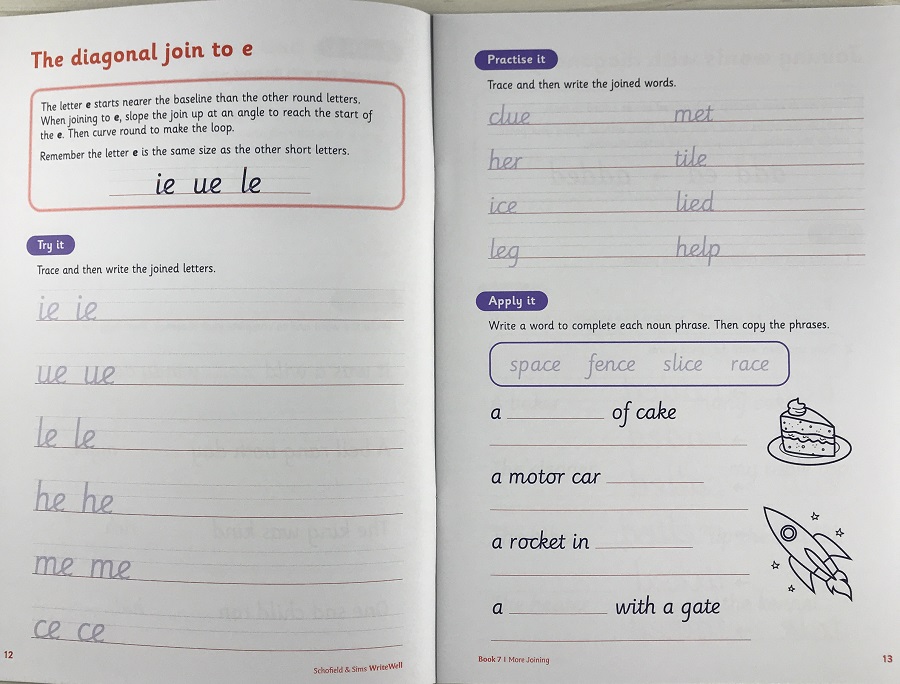 The diagonal join to e
The letter e starts nearer the baseline than the other round letters.
When joining to e, slope the join up at an angle to reach the start of
the e. Then curve round to make the loop.
Remember the letter e is the same size as the other short letters.
ie ue le
Try it
Trace and then write the joined letters.
ie ie
ue ue
le le
he he
me me
ce ce
12
Schofield & Sims WriteWell
Practise it
Trace and then write the joined words.
clue met
her tile
ice lied
leg help
Apply it
Write a word to complete each noun phrase. Then copy the phrases.
space fence slice race
a ________ of cake
a motor car ________
a rocket in ________
a ________ with a gate
Book 7 | More Joining
13